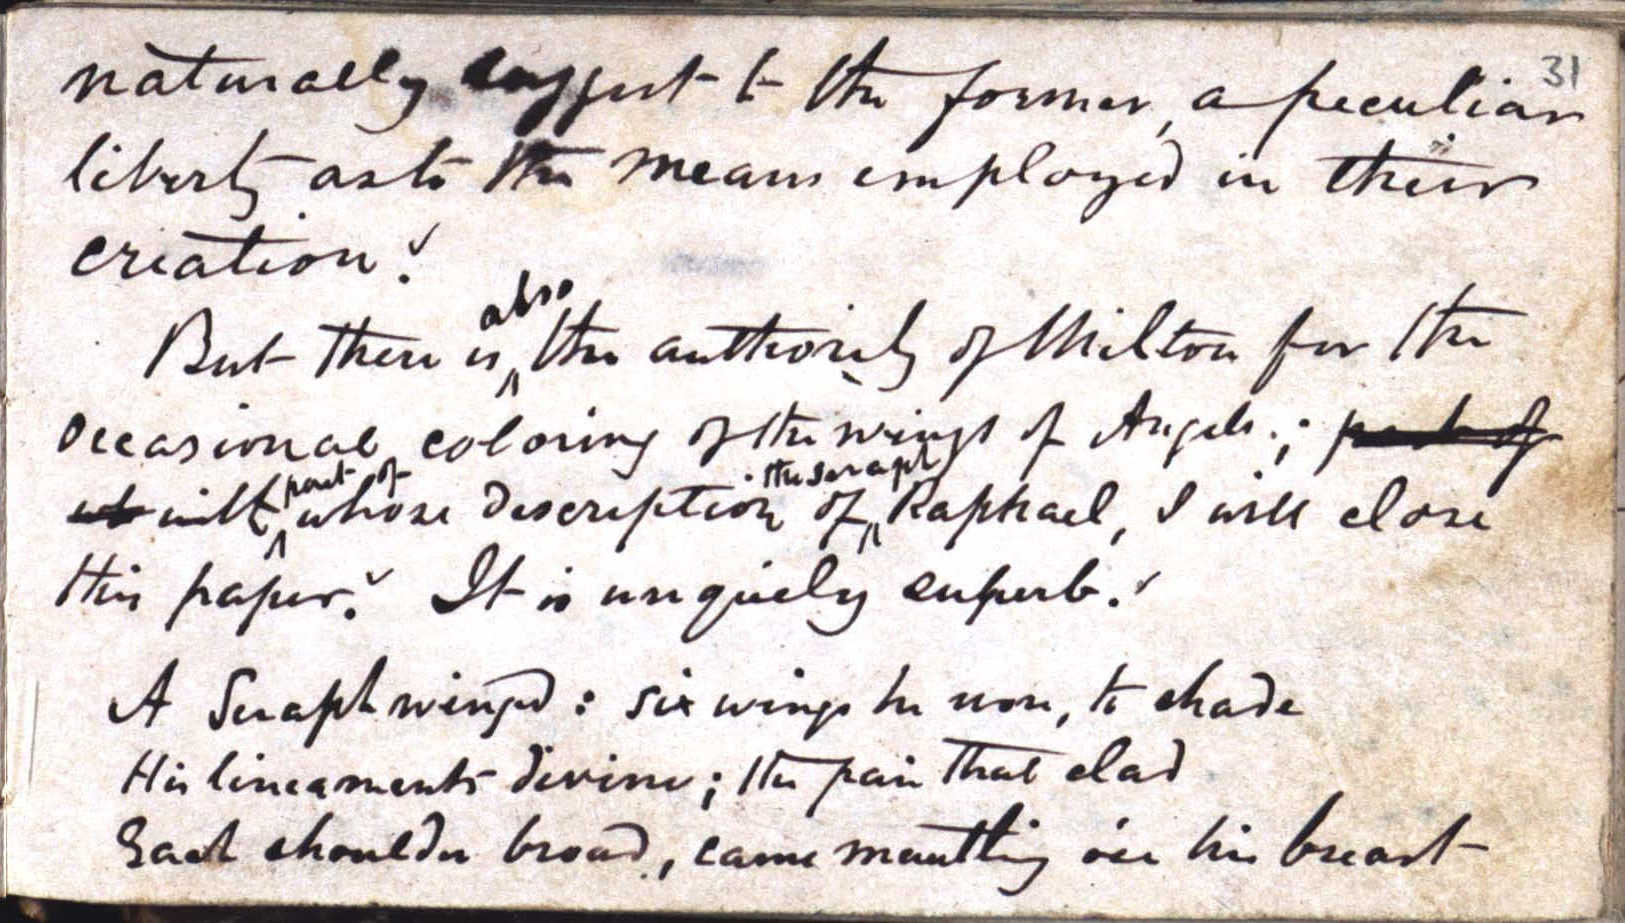 31
naturally suggest to the former, a peculiar
liberty as to the means employed in their
creation.
also
But there is the authority of Milton for the
occasional coloring of the wings of Angels; part of
part of the seraph
with whose description of Raphael, I will close
this paper. It is uniquely superb.
A Seraph winged: six wings he wore, to shade
His lineaments divine; the pair that clad
Each shoulder broad, came mantling o'er his breast